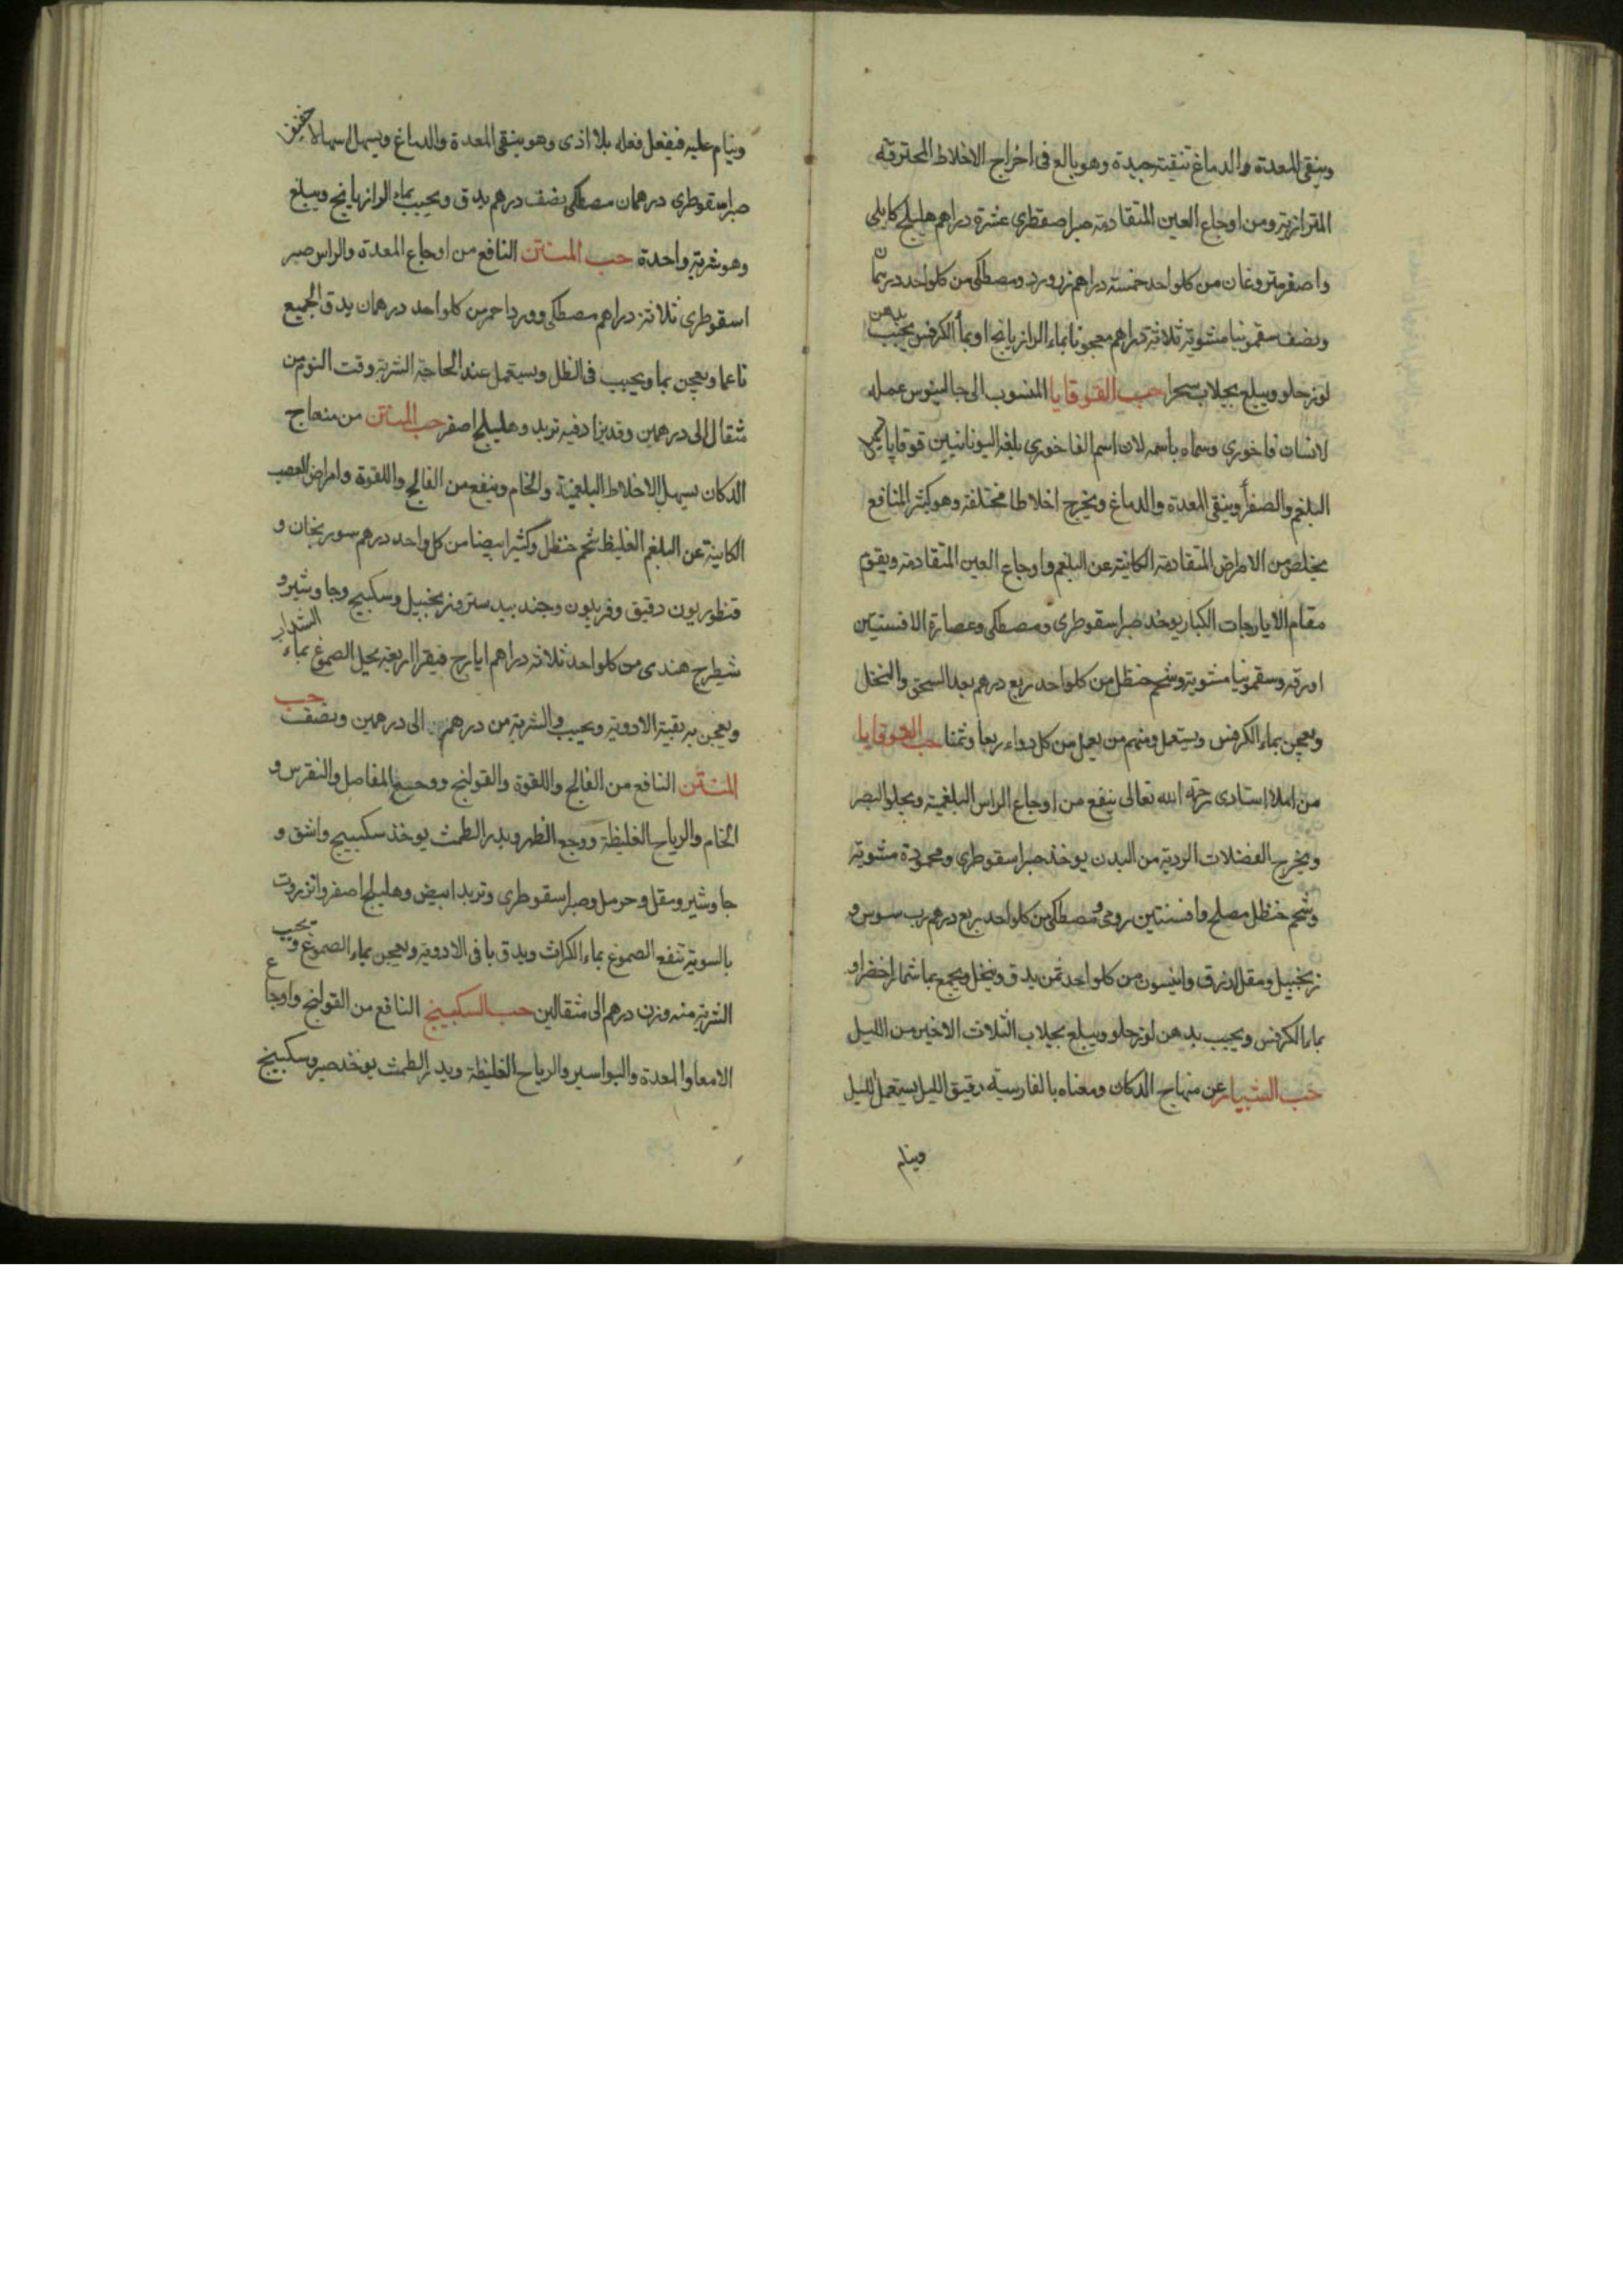 وينقى المعدة والدماغ تنقية جيدة وهو بالع فى اخراج الاخلاط المحترقه
ومن اوجاع العين المتقادمة صبر اصقطرى عشرة دراهم هليلج كابلى
واصفر منزوعان من كلواحد خمسة دراهم زر ورد ومصطكى من كلواحد درهمان
ونصف سقمونيا مشوية ثلاثة دراهم معجونا بماء الرازيانج او بماء الكرفس يحبب بدهن
لوز حلو ويبلع بجلاب سحرا حب القوقايا المنسوب الى جالينوس عمله
لانسان فاخورى وسماه باسمه لان اسم الفاخورى بلغة اليونانيين قوقايا
البلغم والصفرا وينقى المعدة والدماغ ويخرج اخلاطا مختلفة وهو كثير المنافع
يخلص من الامراض المتقادمة الكاينة عن البلغم واوجاع العين المتقادمة ويقوم
مقام الايارجات الكبار يوخد صبر اسقوطرى ومصطكى وعصارة الافسنتين
او رقه وسقمونيا مشوية وشحم حنظل من كلواحد ربع درهم بعد السحق والنخل
ويعجن بماء الكرفس ويستعمل ومنهم من يعمل من كل دواء ربعا وثمنا حب القوقايا
من املا استادى رحمه الله تعالى ينفع من اوجاع الراس البلغمية ويجلو البصر
ويخرج الفضلات الردية من البدن يوخذ صبر اسقوطرى ومحمودة مشوية
وشحم حنظل مصلح وافسنتين رومى ومصطكى من كلواحد ربع درهم رب سوس و
زنجبيل ومقل ازرق وانيسون من كلواحد ثمن يدق وينخل ويجمع بما شمار اخضر او
بماء الكرفس ويحبب بدهن لوز حلو ويبلع بجلاب الثلاث الاخير من الليل
حب الشبيار عن منهاج الدكان ومعناه بالفارسيه رفيق الليل يستعمل بالليل
وينام
وينام عليه فيفعل فعله بلا اذى وهو ينقى المعدة والدماغ ويسهل اسهالا خفيفا
صبر اسقوطرى درهمان مصطكى نصف درهم يدق ويحبب بماء الرازيانج ويبلع
وهو شربة واحدة حب المنتن النافع من اوجاع المعدة والراس صبر
اسقوطرى ثلاثة دراهم مصطكى وورد احمر من كلواحد درهمان يدق الجميع
ناعما ويعجن بما ويحبب فى الظل ويستعمل عند الحاجة الشربة وقت النوم من
مثقال الى درهمين وقد يزاد فيه تربد وهليلج اصفر حب المنتن من منهاج
الدكان يسهل الاخلاط البلغمية والخام وينفع من الفالج واللقوة وامراض العصب
الكاينة عن البلغم الغليظ شحم حنظل وكثيرا بيضا من كل واحد درهم سورنجان و
قنطوريون دقيق وفربيون وجند بيدستر وزنجبيل وسكبينج وجاوشير و
شيطرج هندى من كلواحد ثلاثة دراهم ايارج فيقرا اربعة يحل الصموغ بماء السداب
ويعجن به بقية الادوية ويحبب والشربة من درهم الى درهمين ونصف حب
المنتن النافع من الفالج واللقوة والقولنج ووجع المفاصل والنقرس و
الخام والرياح الغليظة ووجع الظهر ويدر الطمث يوخذ سكبينج واشق و
جاوشير ومقل وحرمل وصبر اسقوطرى وتربد ابيض وهليلج اصفر وانزروت
بالسوية تنقع الصموغ بماء الكراث ويدق باقى الادوية ويعجن بماء الصموغ ويحبب
الشربة منه وزن درهم الى مثقالين حب السكبينج النافع من القولنج واوجاع
الامعا والمعدة والبواسير والرياح الغليظة ويدر الطمث يوخذ صبر وسكبينج